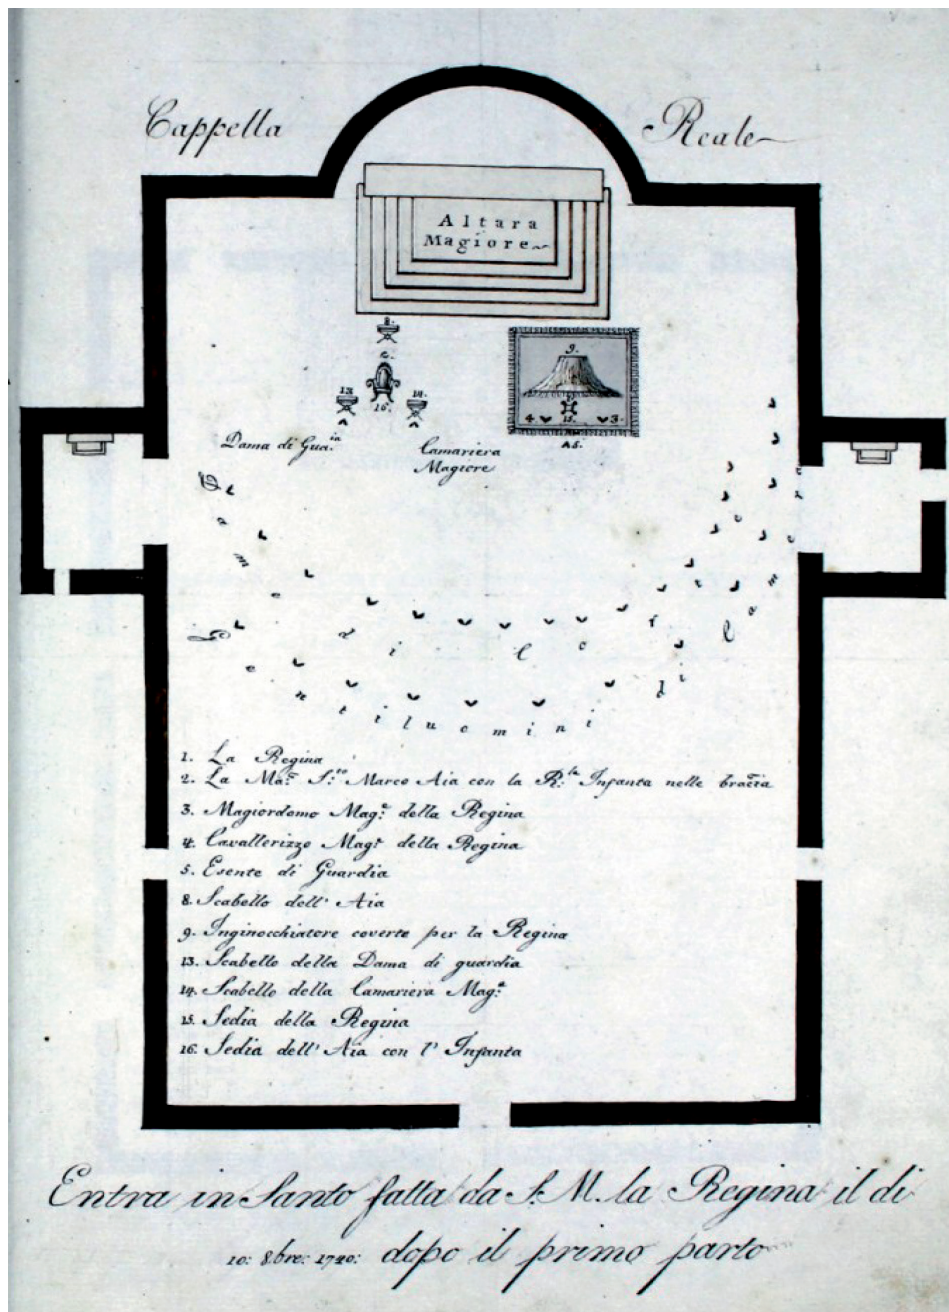 Cappella Reale
Altara
Magiore
8.
2.
13. 16. 14.
9.
4. 15. 3.
A5.
Dama di Gua.ia
Camariera
Magiore
Dame di Corte
Gentiluomini di Camera
1. La Regina
2. La Ma.e S.to Marco Aia con la R.le Infanta nelle braccia
3. Magiordomo Mag.e della Regina
4. Cavallerizzo Mag.e della Regina
5. Esente di Guardia
8. Scabello dell' Aia
9. Inginocchiatore coverte per la Regina
13. Scabello della Dama di guardia
14. Scabello della Camariera Mag.e
15. Sedia della Regina
16. Sedia dell' Aia con l' Infanta
Entra in Santo fatta da S. M. la Regina il di
10: 8bre: 1740: dopo il primo parto